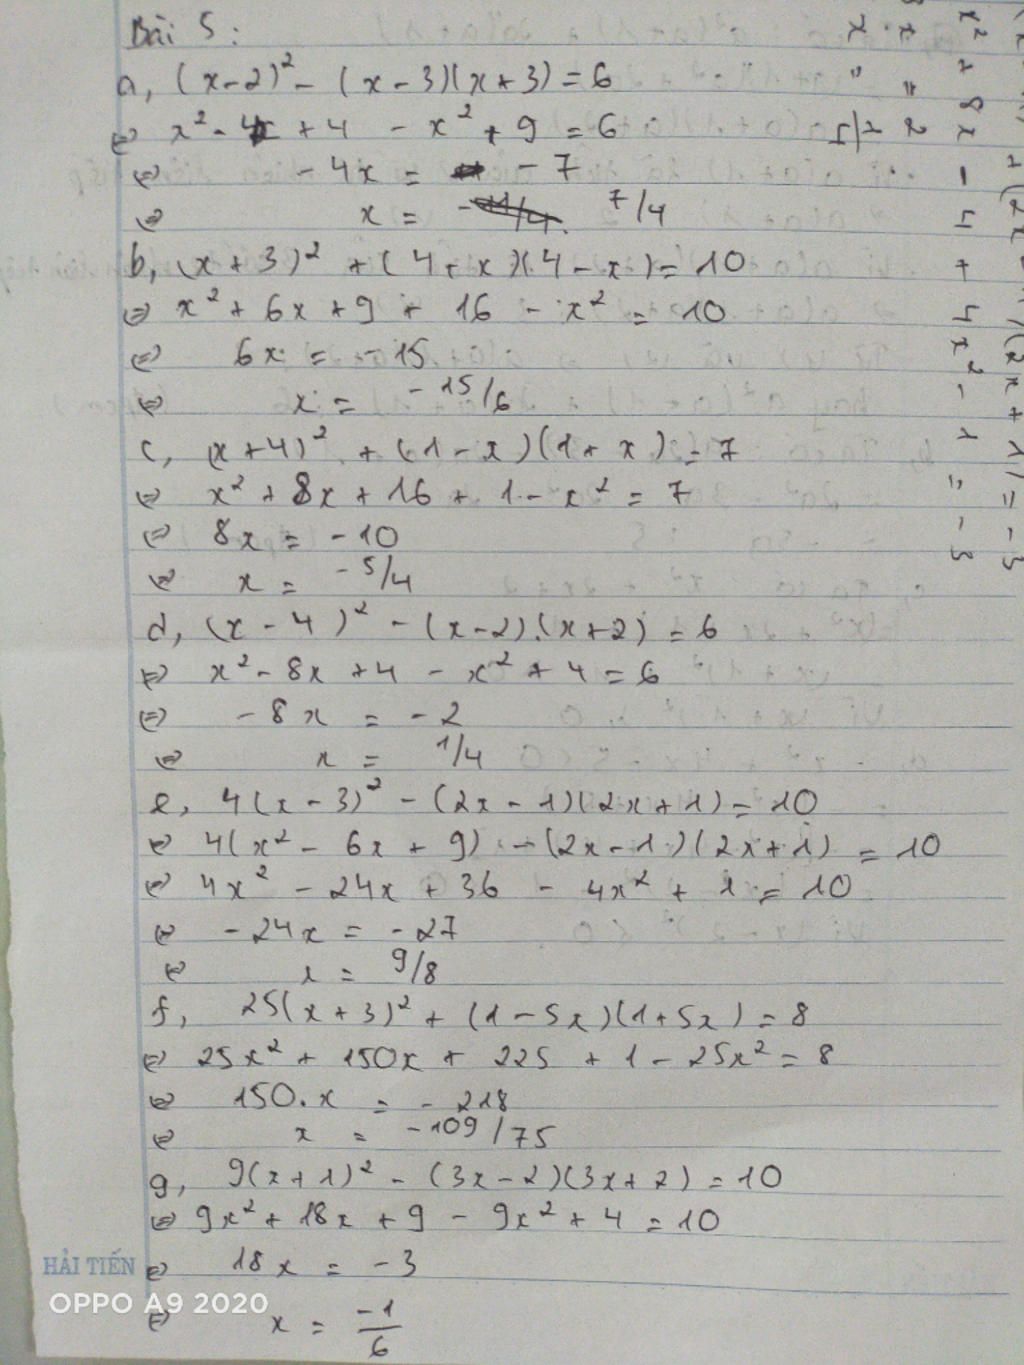 Bài 5:
a, (x-2)² - (x-3)(x+3) = 6
⇔ x² - 4x + 4 - x² + 9 = 6
⇔ - 4x = - 7
⇔ x = 7/4
b, (x+3)² + (4+x)(4-x) = 10
⇔ x² + 6x + 9 + 16 - x² = 10
⇔ 6x = -15
⇔ x = -15/6
c, (x+4)² + (1-x)(1+x) = 7
⇔ x² + 8x + 16 + 1 - x² = 7
⇔ 8x = -10
⇔ x = -5/4
d, (x-4)² - (x-2).(x+2) = 6
⇔ x² - 8x + 4 - x² + 4 = 6
⇔ -8x = -2
⇔ x = 1/4
e, 4(x-3)² - (2x-1)(2x+1) = 10
⇔ 4(x² - 6x + 9) - (2x-1)(2x+1) = 10
⇔ 4x² - 24x + 36 - 4x² + 1 = 10
⇔ -24x = -27
⇔ x = 9/8
f, 25(x+3)² + (1-5x)(1+5x) = 8
⇔ 25x² + 150x + 225 + 1 - 25x² = 8
⇔ 150.x = -218
⇔ x = -109/75
g, 9(x+1)² - (3x-2)(3x+2) = 10
⇔ 9x² + 18x + 9 - 9x² + 4 = 10
⇔ 18x = -3
⇔ x = -1/6
(2x+1) = -3
x² + 8x - 4 + 4x² - 1 = -3
= 2
x = 1/5
HẢI TIẾN
OPPO A9 2020